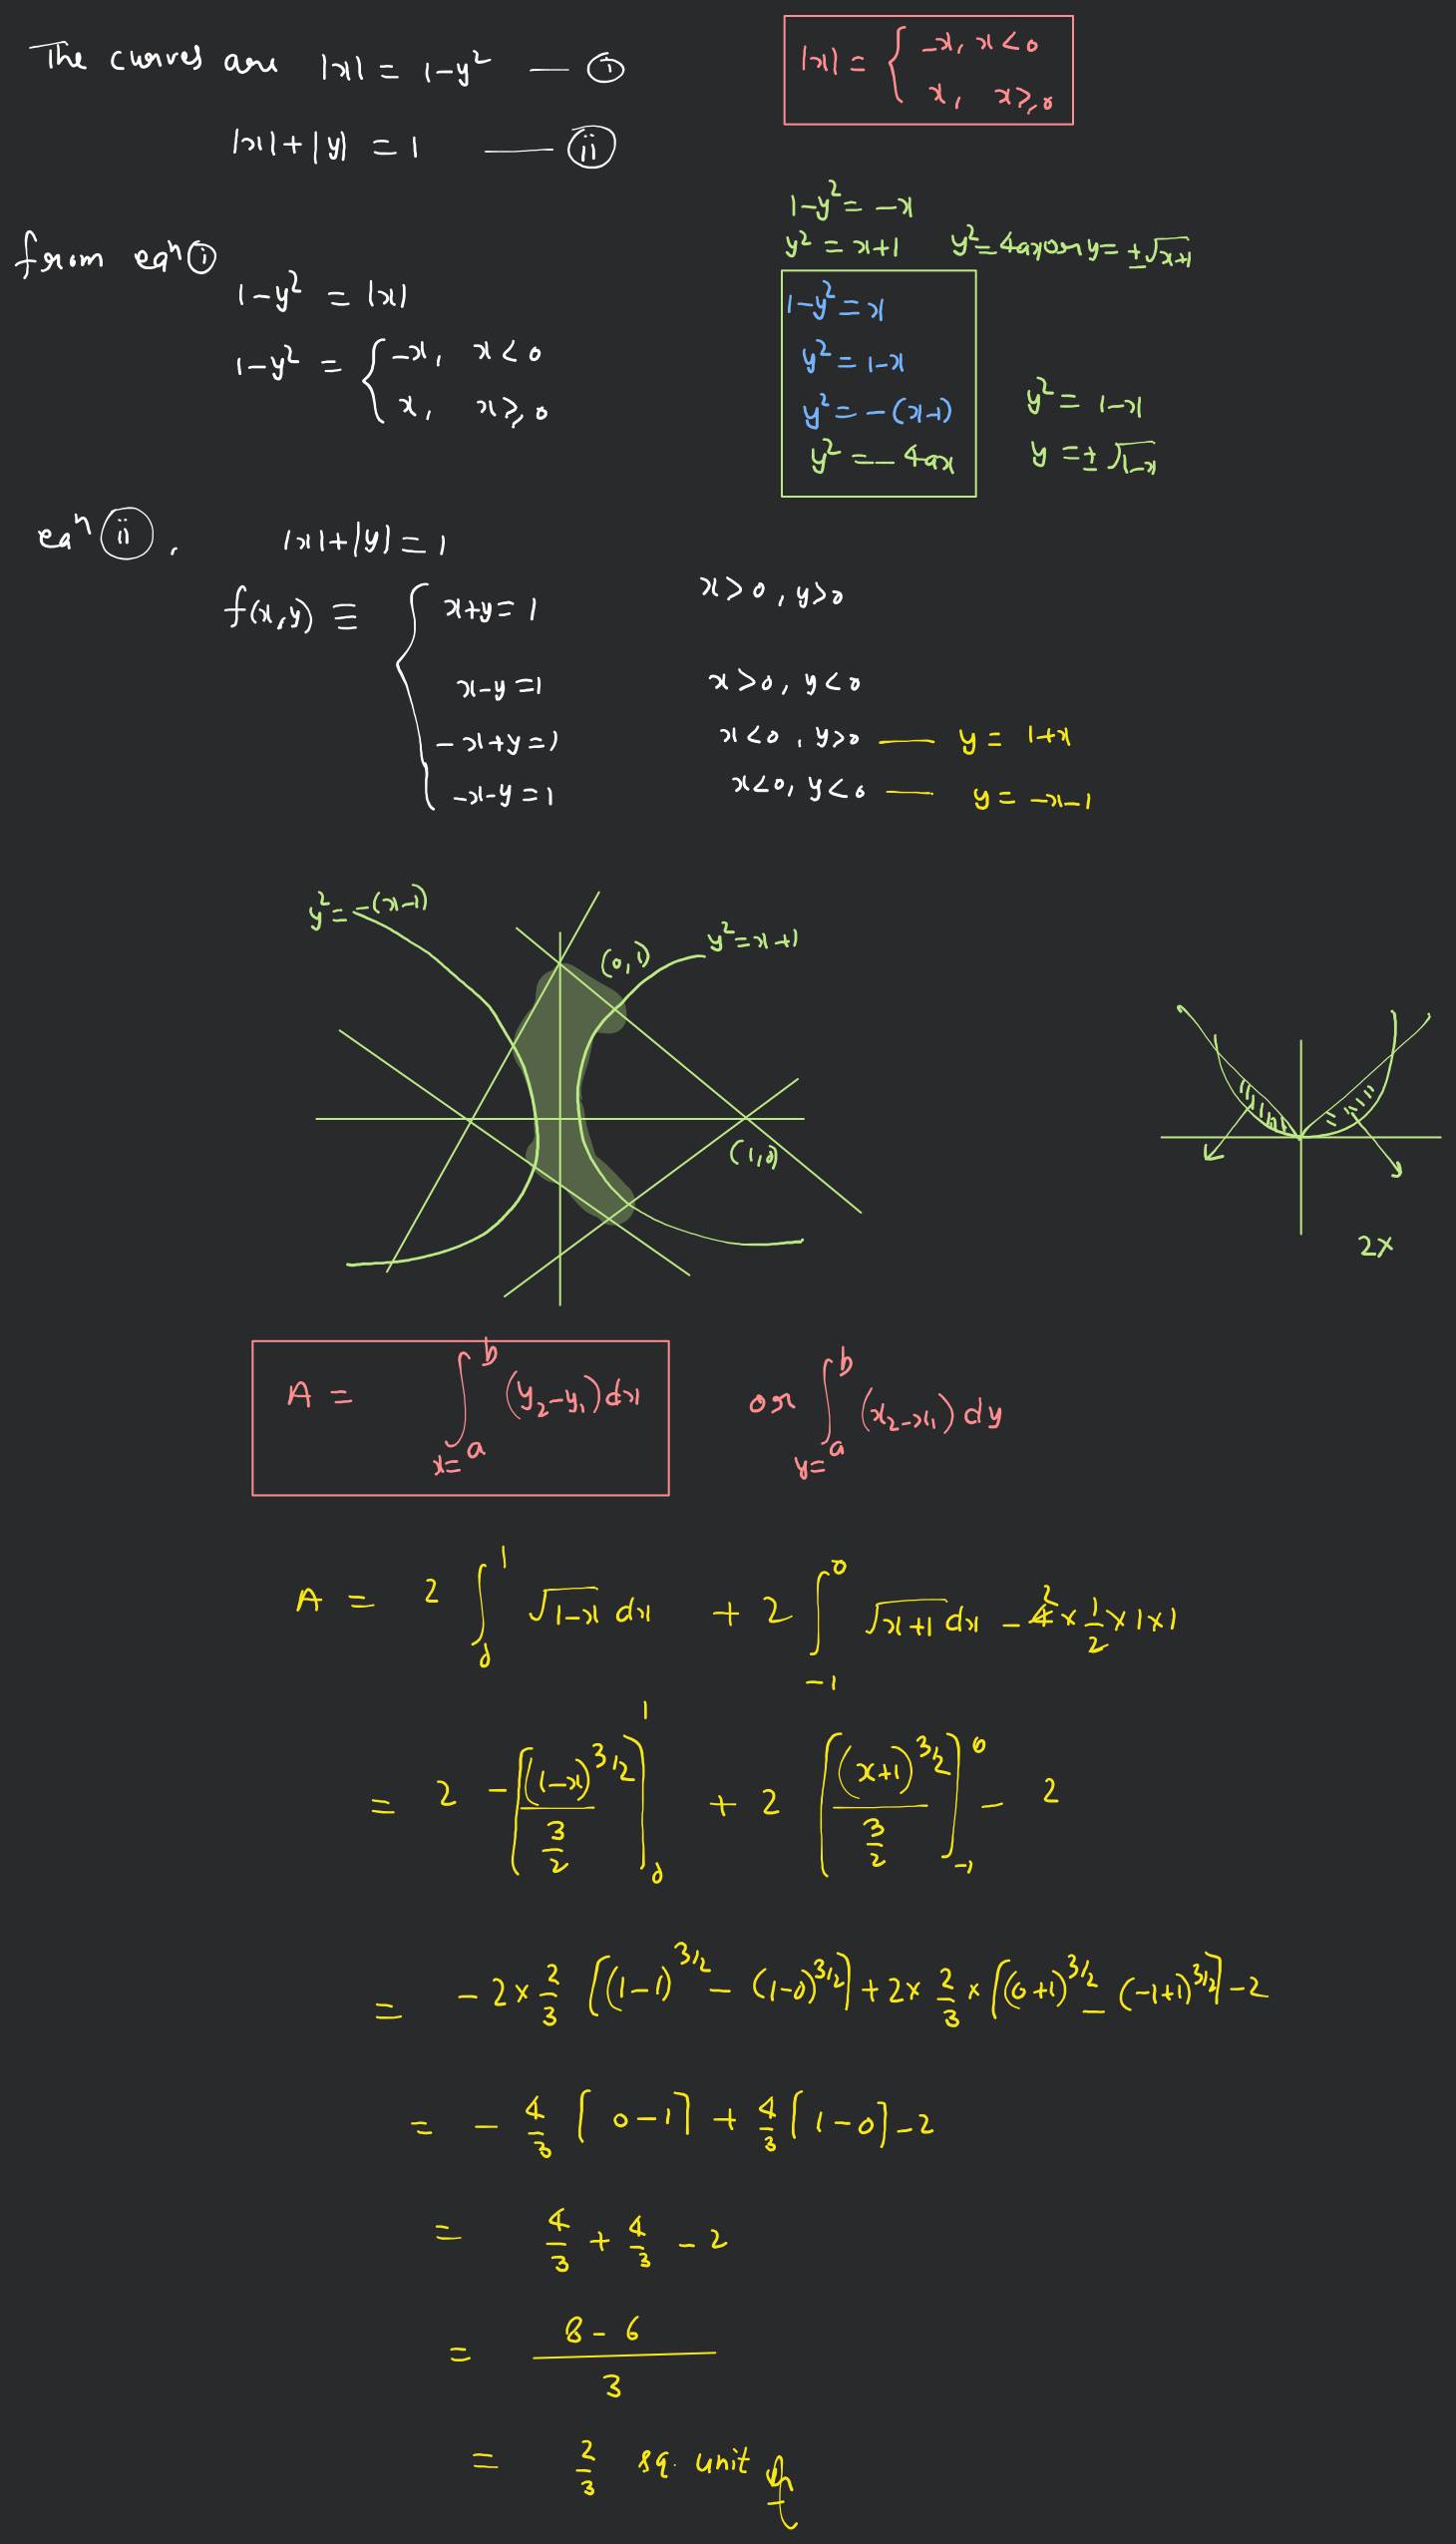 The curves are |x| = 1-y² — (i)
|x| = { -x, x<0
x, x≥0
|x|+|y| = 1 — (ii)
1-y² = -x
y² = x+1 y²=4ax or y = ±√x+1
from eqⁿ (i)
1-y² = |x|
1-y² = { -x, x<0
x, x≥0
1-y² = x
y² = 1-x
y² = -(x-1)
y² = -4ax
y² = 1-x
y = ± √1-x
eqⁿ (ii), |x|+|y| = 1
f(x,y) ≡ { x+y = 1 x>0, y>0
x-y = 1 x>0, y<0
-x+y = 1 x<0, y>0 — y = 1+x
-x-y = 1 x<0, y<0 — y = -x-1
y² = -(x-1)
(0,1)
y² = x+1
(1,0)
2x
A = ∫_{x=a}^{b} (y₂-y₁) dx or ∫_{y=a}^{b} (x₂-x₁) dy
A = 2 ∫_0^1 √1-x dx + 2 ∫_{-1}^0 √x+1 dx - 4 2 × 1/2 × 1×1
= 2 -[(1-x)^{3/2} / (3/2)]_0^1 + 2 [(x+1)^{3/2} / (3/2)]_{-1}^0 - 2
= -2 × 2/3 [(1-1)^{3/2} - (1-0)^{3/2}] + 2 × 2/3 × [(0+1)^{3/2} - (-1+1)^{3/2}] - 2
= - 4/3 [0-1] + 4/3 [1-0] - 2
= 4/3 + 4/3 - 2
= 8-6 / 3
= 2/3 sq. unit